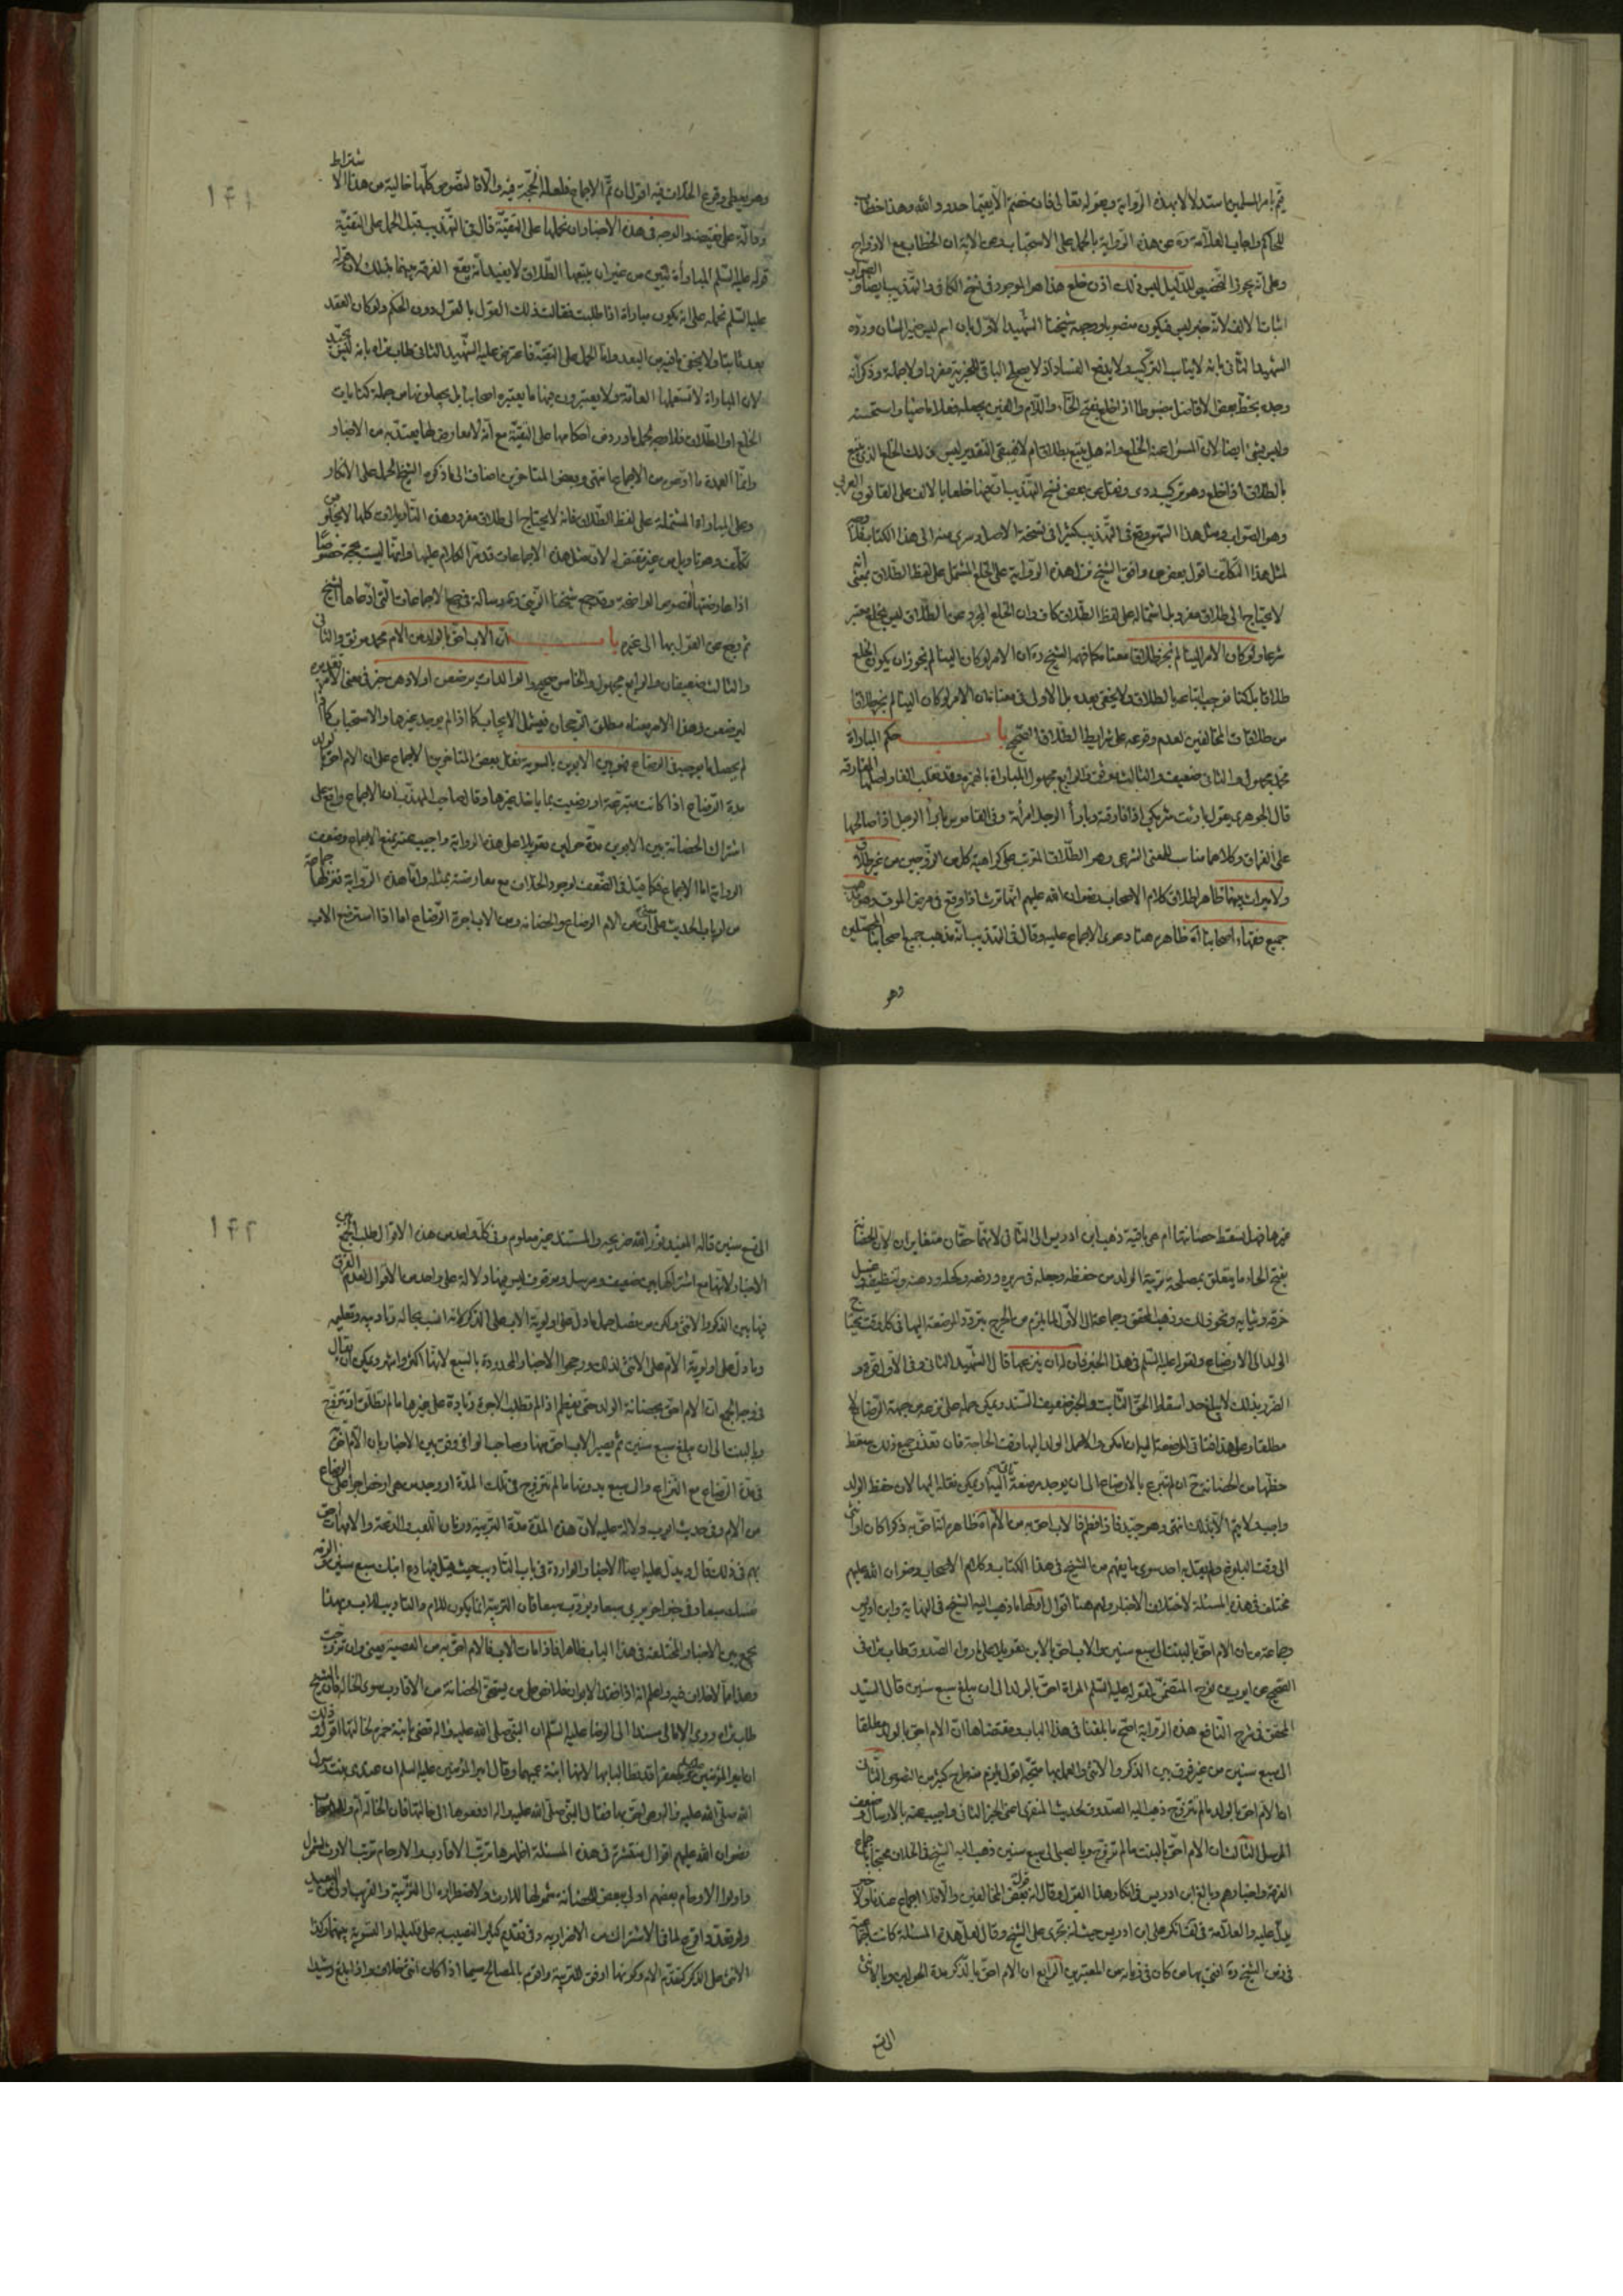 يتم بامر المسلمين استدلالا بهذه الرواية وبقوله تعالى فان خفتم الا يقيما حدود الله وهذا خطاب
للحاكم واجاب العلامة ره عن هذه الرواية بالحمل على الاستحباب وعن الاية ان الخطاب مع الازواج
وعلى انه يجوز التخصيص للدليل ليس ذلك اذن خلع هذا هو الموجود في نسخ الكافي والتهذيب ايضا والصواب
اثباتا لالف لانه خبر ليس فيكون منصوبا ووجهه شيخنا الشهيد الاول بان اسم ليس ضمير الشان ورده
الشهيد الثاني بانه لا يناسب التركيب ولا يدفع الفساد اذ لا يصح الباقي للخبرية مفردا ولا جملة وذكر انه
وجده بخط بعض الافاضل مضبوطا اذا خلع بفتح الخاء واللام والعين بجعله فعلا ماضيا واستحسنه
وليس بشئ ايضا لان المسئول عنه الخلع وانه هل يتبع بطلاق ام لا فيبقى التقدير ليس ذلك الخلع الذي يتبع
بالطلاق اذا خلع وهو تركيب ردي ونقل عن بعض نسخ التهذيب انهما خلعا بالالف على القانون العربي
وهو الصواب ومثل هذا السهو وقع في التهذيب كثيرا في نسخة الاصل وسرى منه الى هذا الكتاب فلا وجه
لمثل هذا التكلف اقول بعض من وافق الشيخ نزل هذه الرواية على الخلع المشتمل على لفظ الطلاق بمعنى انه
لا يحتاج الى طلاق مفرد بل اشتماله على لفظ الطلاق كاف وان الخلع المجرد عن الطلاق ليس بخلع معتبر
شرعا ولو كان الامر الينا لم نجز طلاقا معناه كما فهمه الشيخ ره ان الامر لو كان الينا لم نجوز ان يكون الخلع
طلاقا بل كنا نوجب اتباعه بالطلاق ولا يخفى بعده بل الاولى في معناه ان الامر لو كان الينا لم نجز طلاقا
من طلاقات المخالفين لعدم وقوعه على شرايط الطلاق الصحيح باب حكم المباراة
محمد مجهول والثاني ضعيف والثالث موثق والرابع مجهول المباراة بالهمزة وقد تقلب الفا واصلها المفارقة
قال الجوهري يقول بارئت شريكي اذا فارقته وبارأ الرجل امرأته وفي القاموس بارأ الرجل اذا صالحها
على الفراق وكلاهما مناسب للمعنى الشرعي وهو الطلاق المترتب على كراهية كل من الزوجين من غير طلاق
ولا ميراث بينهما ظاهر اطلاق كلام الاصحاب رضوان الله عليهم انهما لا يتوارثان اذا وقع في مرض الموت
جميع فقهاء اصحابنا اه ظاهره هنا دعوى الاجماع عليه وقال في التهذيب انه مذهب جميع اصحابنا المحصلين
وهو
۱۴۱
وهو يعطي وقوع الخلاف فيه اقول ان تم الاجماع فلعله الحجة فيه والا فالنصوص كلها خالية من هذا الاشتراط
ودالة على نقيضه والوجه في هذه الاخبار ان نحملها على التقية قال في التهذيب قبل الحمل على التقية
قوله عليه السلم المبارأة تبين من غير ان يتبعها الطلاق لا يفيد انه يقع الفرقة بينهما بذلك لان قوله
عليه السلم نحمله على انه يكون مباراة اذا طلبت فقالت ذلك القول بالقول دون الحكم ولو كان العقد
بعد ثابتا ولا يخفى ما فيه من البعد واما الحمل على التقية فاعترض عليه الشهيد الثاني طاب ثراه بانه ليس بجيد
لان المباراة لا تستعملها العامة ولا يعتبرون فيها ما يعتبره اصحابنا بل يجعلونها من جملة كنايات
الخلع او الطلاق فلا وجه لحمل ما ورد من احكامها على التقية مع انه لا معارض لها يعتد به من الاخبار
وانما العمدة ما ادعوه من الاجماع انتهى وبعض المتاخرين اضاف الى ما ذكره الشيخ الحمل على الانكار
وعلى المباراة المشتملة على لفظ الطلاق فانه لا يحتاج الى طلاق مفرد وهذه التاويلات كلها لا يخلو من
تكلف وهو تاويل من غير مقتض له لان مثل هذه الاجماعات قد مر الكلام عليها وانها ليست بحجة خصوصا
اذا عارضتها النصوص الواضحة وقد جمع شيخنا الزيني ره رسالة في جمع الاجماعات التي ادعاها الشيخ
ثم رجع عن القول بها الى غيره باب ان الاب احق بالولد من الام محمد موثق والثاني
والثالث ضعيفان والرابع مجهول والخامس صحيح والوالدات يرضعن اولادهن خبر في معنى الامر تقديره
ليرضعن وهذا الامر معناه مطلق الرجحان فيشمل الايجاب كما اذا لم يوجد غيرها والاستحباب كما اذا
لم يحصل ما يوجبه في الرضاع فهو بين الابوين بالسوية نقل بعض المتاخرين الاجماع على ان الام احق بالولد
مدة الرضاع اذا كانت متبرعة او رضيت بما ياخذ غيرها وقال صاحب المهذب ان الاجماع واقع على
اشتراك الحضانة بين الابوين مدة حولين تعويلا على هذه الرواية واجيب عنه بمنع الاجماع وضعف
الرواية اما الاجماع فكما قيل في الضعف لوجود الخلاف مع معارضته بمثله واما هذه الرواية فنزلها جماعة
من ارباب الحديث على ان من الام الرضاع والحضانة ومن الاب اجرة الرضاع اما اذا استرضع الاب
غيرها فهل تسقط حضانتها ام هي باقية ذهب ابن ادريس الى الثاني لانهما حقان متغايران لان الحضانة
بفتح الحاء ما يتعلق بمصلحة تربية الولد من حفظه وجعله في سريره ورفعه وكحله ودهنه وتنظيفه وغسل
خرقه وثيابه ونحو ذلك وذهب المحقق وجماعة الى الاول لما يلزم من الحرج بتردد المرضعة اليها في كل وقت يحتاج
الولد الى الارضاع ولقوله عليه السلم في هذا الخبر فان له ان ينزعه منها قال الشهيد الثاني وفي الاول قوة و
الضرر بذلك لا يبلغ حد اسقاط الحق الثابت والخبر ضعيف السند ويمكن حمله على نزعه من جهة الرضاع لا
مطلقا وعلى هذا فتاتي المرضعة اليه ان امكن والا حمل الولد اليها وقت الحاجة فان تعذر جميع ذلك سقط
حظها من الحضانة ح ان لم تتبرع بالارضاع الى ان يوجد مرضعة تاتي اليه او يمكن نقله اليها لان حفظ الولد
واجب لا يتم الا بذلك انتهى وهو جيد فاذا فطم فالاب احق به من الام اه ظاهره انه احق به ذكرا كان او انثى
الى وقت البلوغ ولم يقل به احد سوى ما يفهم من الشيخ في هذا الكتاب وكلام الاصحاب رضوان الله عليهم
مختلف في هذه المسئلة لاختلاف الاخبار ولهم هنا اقوال اولها ما ذهب اليه الشيخ في النهاية وابن ادريس
وجماعة من ان الام احق بالبنت الى سبع سنين والاب احق بالابن تعويلا على ما رواه الصدوق طاب ثراه في
الصحيح عن ايوب بن نوح المتضمن لقوله عليه السلم المراة احق بالولد الى ان يبلغ سبع سنين قال السيد
المحقق في شرح النافع هذه الرواية اصح ما بلغنا في هذا الباب ومقتضاها ان الام احق بالولد مطلقا
الى سبع سنين من غير فرق بين الذكر والانثى والعمل بها متجه اقول يلزم منه طرح كثير من النصوص الثاني
ان الام احق بالولد ما لم تتزوج ذهب اليه الصدوق لحديث المنقري اعني الخبر الثاني واجيب عنه بالارسال وضعف
المرسل الثالث ان الام احق بالبنت ما لم تتزوج وبالصبي الى سبع سنين ذهب اليه الشيخ في الخلاف محتجا باجماع
الفرقة واخبارهم وبالغ ابن ادريس في انكار هذا القول وقال انه قول بعض المخالفين والا فلا اجماع عندنا ولا خبر
يدل عليه والعلامة في لف انكر على ابن ادريس حيث انه تجرى على الشيخ وقال لعل هذه المسئلة كانت مجمعا عليها
في زمن الشيخ ره افتى بها من كان في زمانه من المعتبرين الرابع ان الام احق بالذكر مدة الحولين وبالانثى
الى تسع
۱۴۲
الى تسع سنين قاله المفيد نور الله ضريحه والمستند غير معلوم وفي كل واحد من هذه الاقوال طلب لجمع
الاخبار لانها مع اشتراكها بين ضعيف ومرسل وموقوف ليس فيها دلالة على واحد من الاقوال لعدم الفرق
فيها بين الذكر والانثى ولكن من فصل حمل ما دل على اولوية الاب على الذكر لانه انسب بحاله وتاديبه وتعليمه
وما دل على اولوية الام على الانثى لذلك ورجحوا الاخبار المحدودة بالسبع لانها اكثر واشهر ويمكن ان يقال
في وجه الجمع ان الام احق بحضانة الولد حتى يفطم اذا لم تطلب الاجرة زيادة على غيرها ما لم تطلق او تتزوج
وبالبنت الى ان يبلغ سبع سنين ثم يصير الاب احق بهما وصاحب الوافي وفق بين الاخبار بان الام احق
في مدة الرضاع مع النزاع والى سبع بدونها ما لم تتزوج في تلك المدة او وجد من هي ارخص اجرا على الرضاع
من الام وفي حديث ايوب دلالة عليه لان هذه المدة مدة التربية وزمان اللعب والدعة والامهات احق
بهم في ذلك قال ويدل عليه ايضا الاخبار الواردة في باب التاديب حيث قيل فيها دع ابنك سبع سنين والزمه
نفسك سبعا وفي خبر اخر يربى سبعا ويؤدب سبعا فان التربية انما يكون للام والتاديب للاب وبهذا
يجمع بين الاخبار المختلفة في هذا الباب ظاهرا فاذا مات الاب فالام احق به من العصبة يعني وان تزوجت
وهذا مما لا خلاف فيه واعلم انه اذا فقد الابوان فلا نص على من يستحق الحضانة من الاقارب سوى الخالة فان الشيخ
طاب ثراه روى في الامالي مسندا الى الرضا عليه السلام ان النبي صلى الله عليه واله قضى بابنة حمزة لخالتها اقول وذلك
ان امير المؤمنين عليه السلم وجعفرا قد طالبا بها لانها ابنة عمهما وقال امير المؤمنين عليه السلم ان عندي بنت رسول
الله صلى الله عليه واله وهي احق بها فقال النبي صلى الله عليه واله ادفعوها الى خالتها فان الخالة ام وللاصحاب
رضوان الله عليهم اقوال منتشرة في هذه المسئلة اظهرها ترتب الاقارب والارحام ترتب الارث لعموم
واولوا الارحام بعضهم اولى ببعض للحضانة شمولها للارث ولاضطراره الى التربية والقريب اولى من البعيد
ولو تعدد اقرع لما في الاشتراك من الاضرار به وفي تقديم كثير النصيب على قليله او التسوية بينهما وكذا
الانثى على الذكر كتقديم الام وكونها اوفق للتربية واقوم بالمصالح سيما اذا كان انثى خلاف واذا بلغ رشيدا